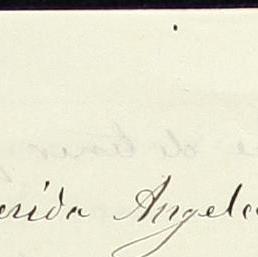 erida Angela